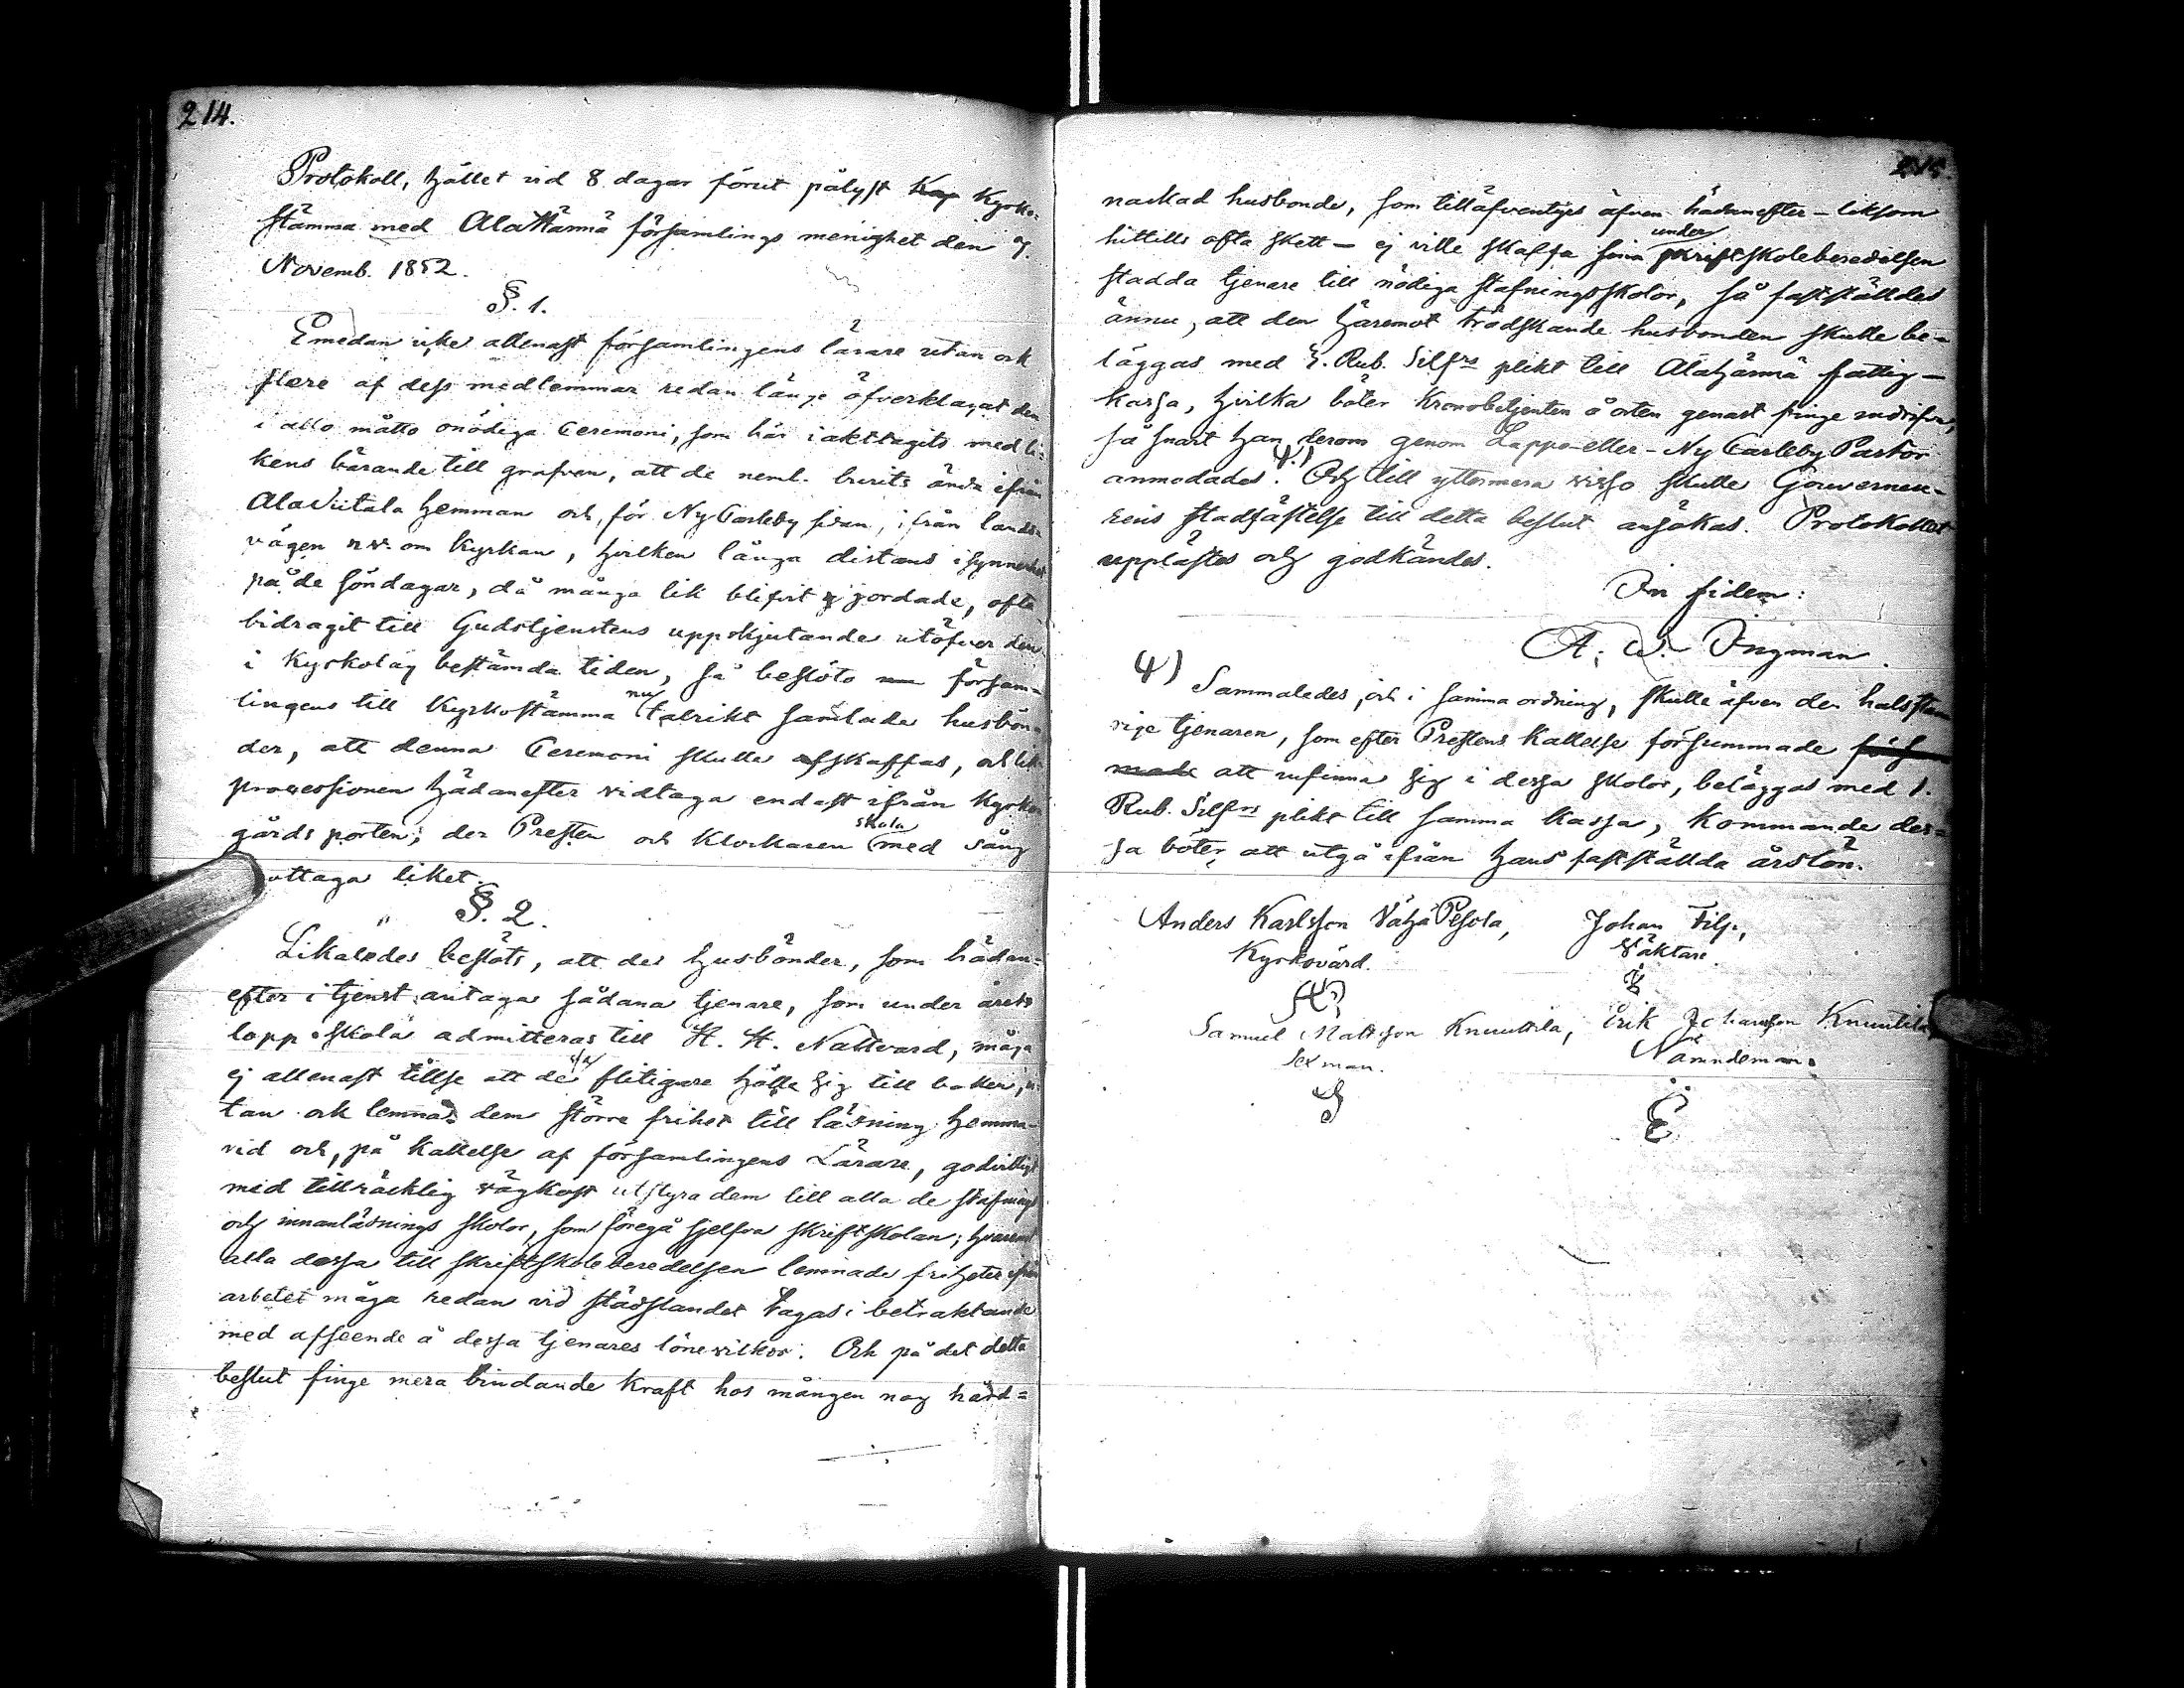 214.
Protokoll, hållet vid 8 dagar förut pålyst Kap Kyrko-
stämma med AlaHärmä församlings menighet den 7.
Novemb. 1852.
§. 1.
Emedan icke allenast församlingens lärare utan ock
flere af dess medlemmar redan länge öfverklagat den
i allo måtto onödiga Ceremoni, som här iakttagits med li-
kens bärande till grafven, att de neml. burits ända ifrån
AlaViitala hemman och, för NyCarleby sidan, ifrån lands-
vägen n.v. om Kyrkan, hvilken långa distans isynnerhet
på de söndagar, då många lik blifvit jordade, ofta
bidragit till Gudstjenstens uppskjutande utöfver den
i Kyrkolag bestämda tiden, så beslöto församm-
lingens till Kyrkostämma nu talrikt samlade husbön-
der, att denna Ceremoni skulle afskaffas, och lik-
processionen hädanefter vidtaga endast ifrån Kyrko-
gårds porten; der Presten och Klockaren skola med sång
mottaga liket.
§. 2.
Likaledes beslöts, att de husbönder, som hädan-
efter i tjenst antaga sådana tjenare, som under årets
lopp skola admitteras till H. H. Nattvard, måga
ej allenast tillse att desse flitigare hålla sig till boken, u-
tan ock lemna dem större frihet till läsning hemma-
vid och, på kallelse af församlingens Lärare, godvilligt
med tillräcklig vägkost utstyra dem till alla de stafnings
och innanläsnings skolor, som föregå sjelfva skriftskolan; hvaremot
alla dessa till skriftskoleberedelsen lemnade friheter ifrån
arbetet måga redan vid städslandet tagas i betraktande
med afseende å dessa tjenares lönevilkor. Och på det detta
beslut finge mera bindande kraft hos mången nog hård-
215.
nackad husbonde, som tilläfventyrs äfven hädanefter - liksom
hittills ofta skett - ej ville skaffa sina under skriftskoleberedelsen
stadda tjenare till nödiga stafningsskolor, så fastställdes
ännu, att den häremot tredskande husbonden skulle be-
läggas med 3. Rub. Silfrs plikt till Alahärmä fattig-
kassa, hvilka böter Kronobetjenten å orten genast finge indrifva,
så snart han derom genom Lappo- eller - Ny Carleby Pastor
anmodades. #) Och till yttermera visso skulle Gouverneu-
rens stadfästelse till detta beslut ansökas. Protokollet
upplästes och godkändes.
In fidem:
A. W. Ingman.
#) Sammaledes, och i samma ordning, skulle äfven den halsstar-
rige tjenaren, som efter Prestens kallelse försummade försum
made att infinna sig i dessa skolor, beläggas med 1.
Rub. Silfrs plikt till samma kassa, kommande des-
sa böter att utgå ifrån hans fastställda årslön.
Anders Karlsson Vähä Pesola, Johan Filp.,
Kyrkovärd. Väktare.
Samuel Mattsson Knuuttila, Erik Johansson Knuutila
Sexman. Nämndeman.